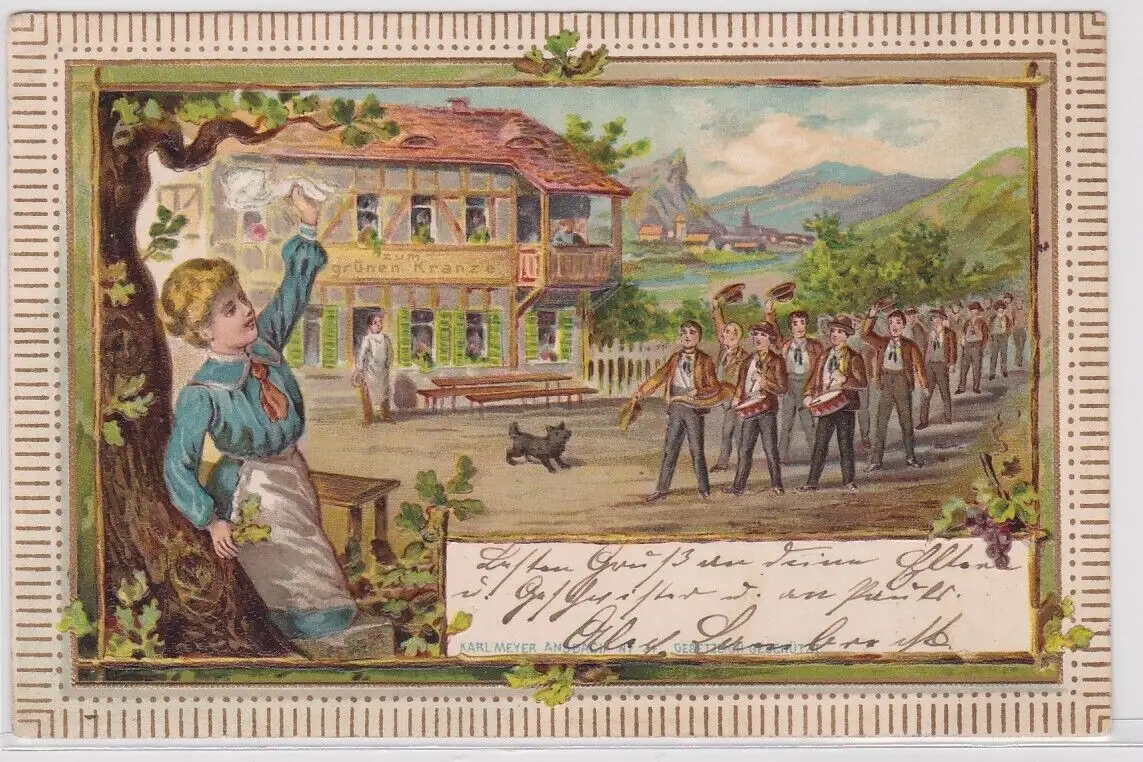 zum
grünen Kranze
Besten Gruß an deine Eltern
u. Geschwister u. an Pauls.
KARL MEYER ANSBACH GESETZLICH GESCHÜTZT